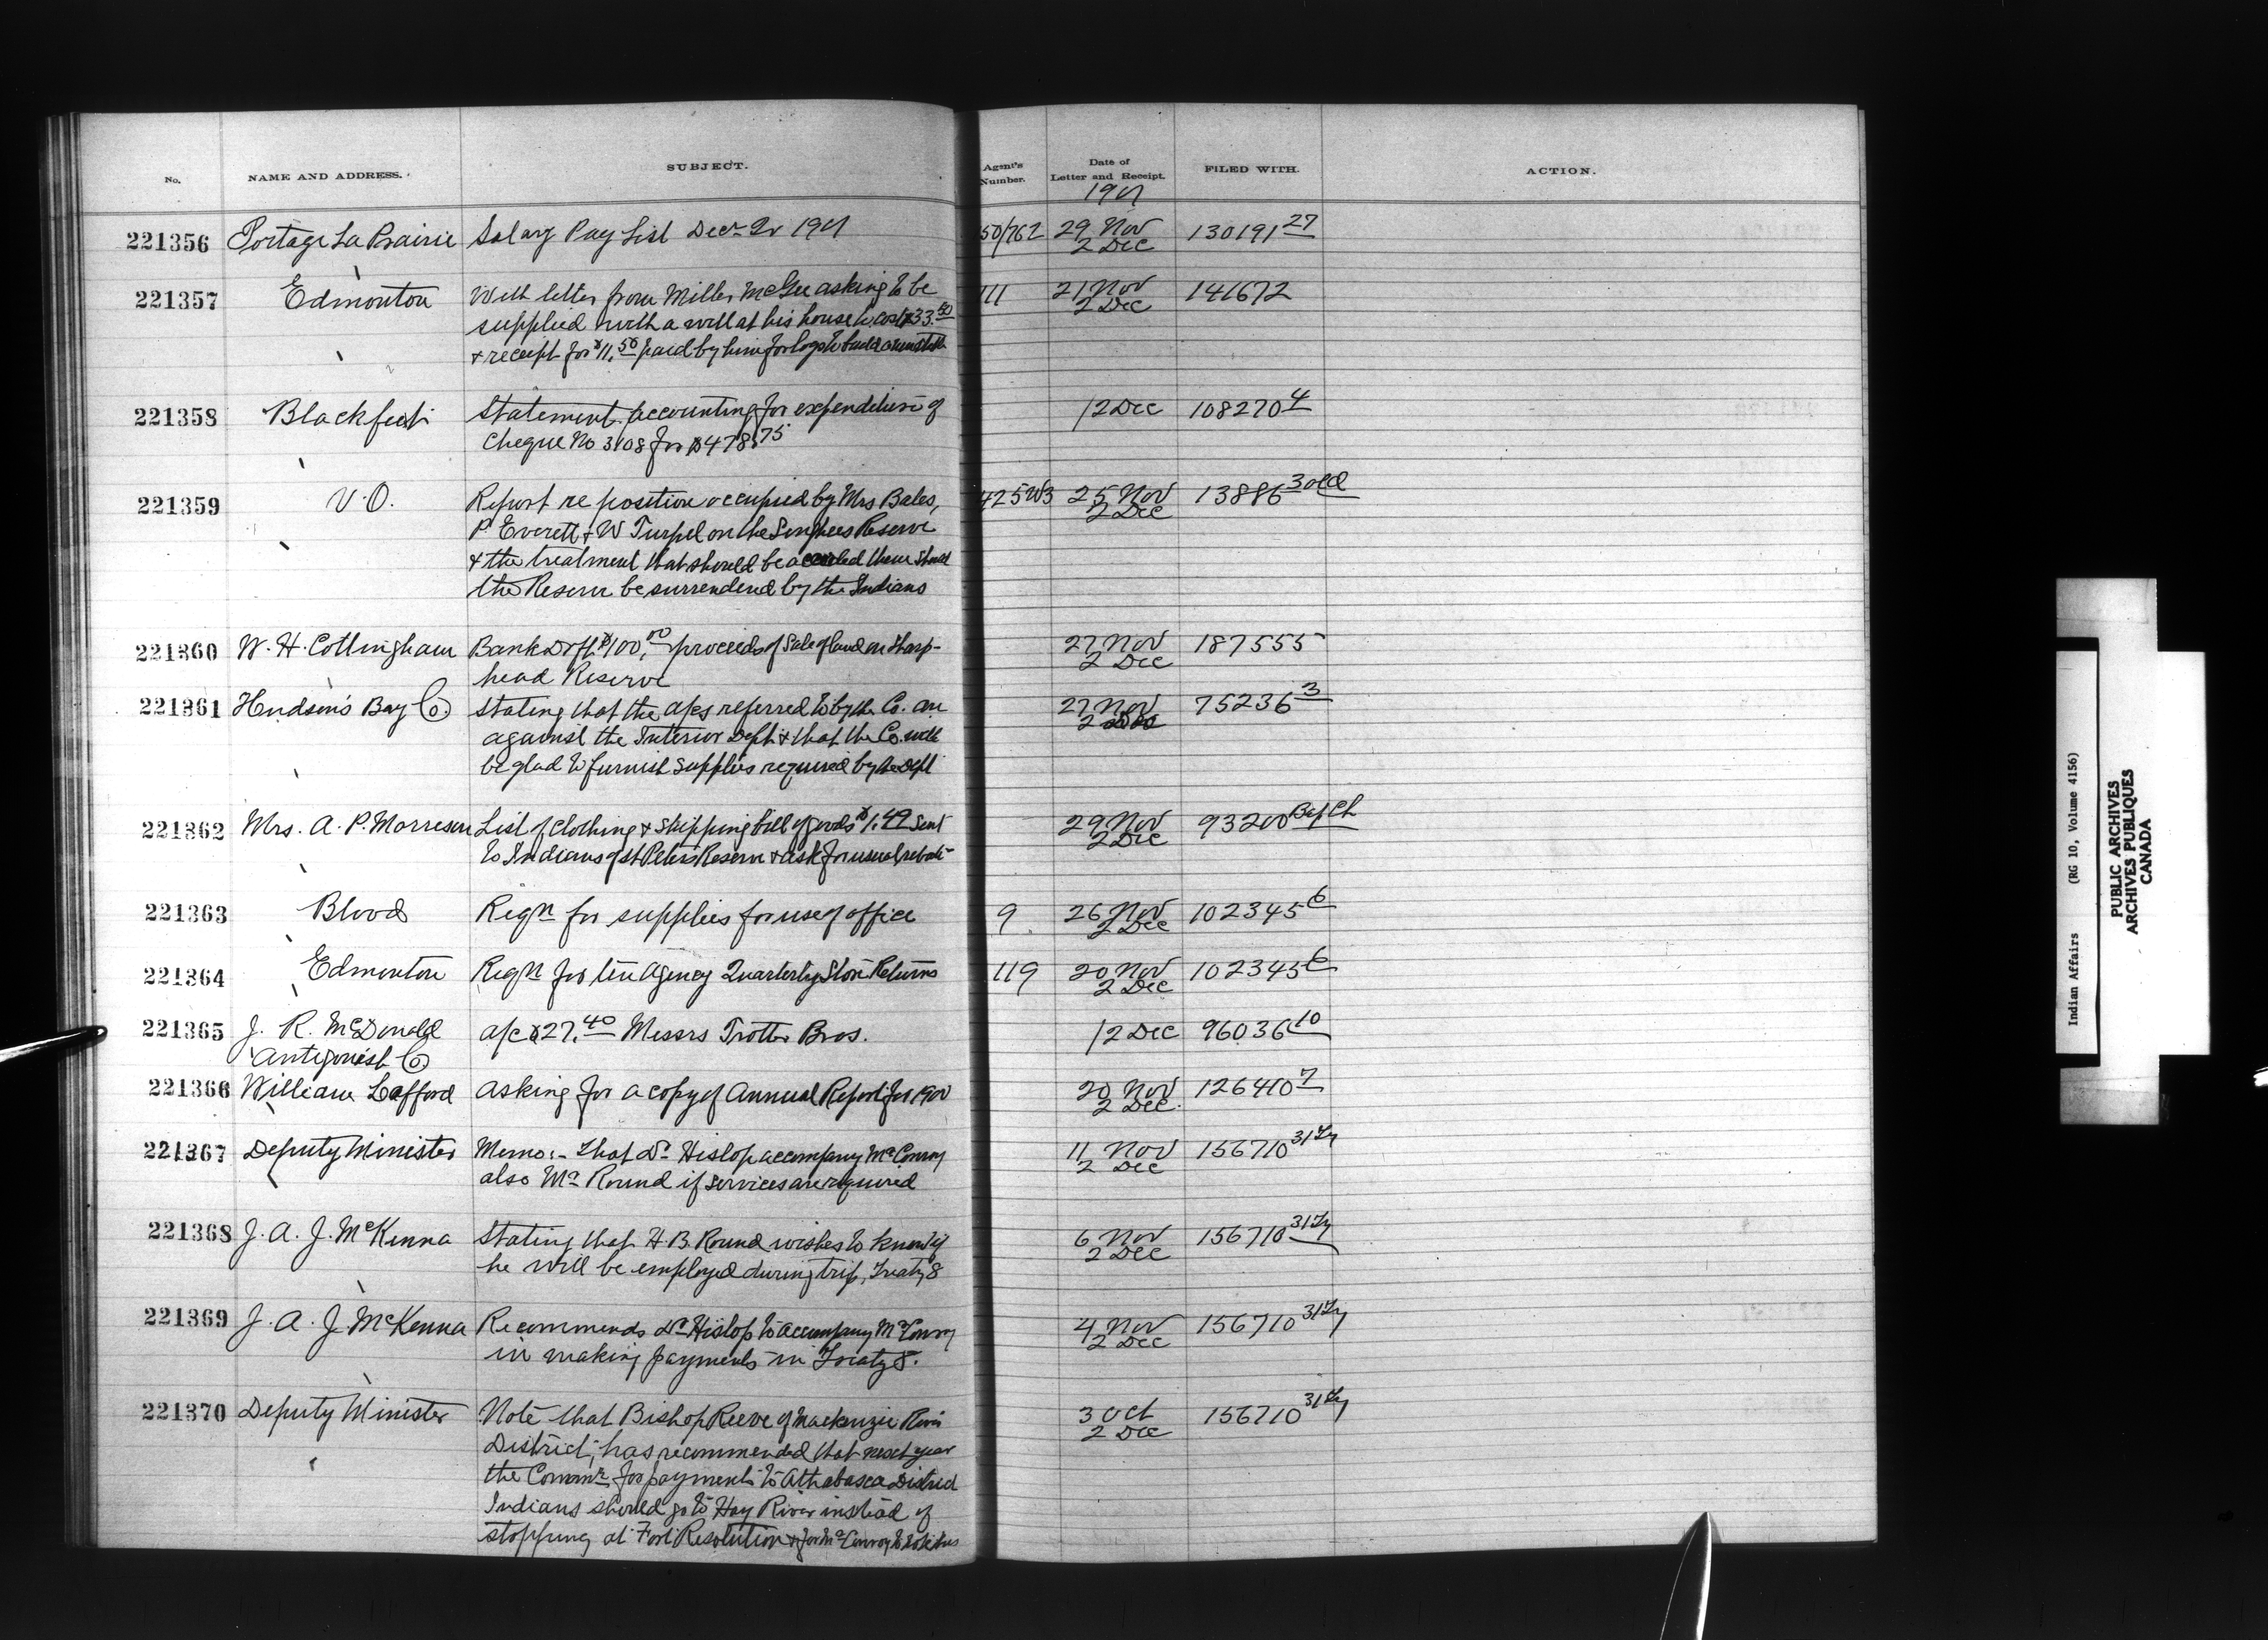 No. NAME AND ADDRESS. SUBJECT. Agent's Number. Date of Letter and Receipt. FILED WITH. ACTION.
1901
221356 Portage La Prairie Salary Pay List Decr 1901 50/762 29 Nov 130191 27
2 Dec
221357 Edmonton With letter from Miller McGee asking to be 111 21 Nov 141672
supplied with a well at his house to cost $33.50 2 Dec
& receipt for $11.50 paid by him for logs to build
221358 Blackfeet Statement accounting for expenditure of 12 Dec 108270 4
Cheque No 3108 for $478.75
221359 V.O. Report re position occupied by Mrs Bales, 425 25 Nov 13886 3 old
P Everett & W Turpel on the Songhees Reserve 2 Dec
& the treatment that should be accorded them should
the Reserve be surrendered by the Indians
221360 W. H. Cottingham Bank Dft $100.00 proceeds of Sale of land on Sharp- 27 Nov 187555
head Reserve 2 Dec
221361 Hudson's Bay Co. Stating that the a/cs referred to by the Co. are 27 Nov 75236 3
against the Interior Dept & that the Co. will 2 Dec
be glad to furnish supplies required by the Dept
221362 Mrs. A. P. Morreson List of Clothing & shipping bill of goods $1.49 sent 29 Nov 93200
to Indians of St Peters Reserve & ask for usual rebate 2 Dec
221363 Blood Reqn for supplies for use of office 9 26 Nov 102345 6
2 Dec
221364 Edmonton Reqn for ten Agency Quarterly Store Returns 119 20 Nov 102345 6
2 Dec
221365 J. R. McDonald a/c $27.40 Messrs Trotter Bros. 12 Dec 96036 10
Antigonish Co.
221366 William Lafford Asking for a copy of Annual Report for 1900 20 Nov 126410 7
2 Dec.
221367 Deputy Minister Memo:- that Dr Hislop accompany Mr Conroy 11 Nov 156710 31 Ty
also Mr Round if services are required 2 Dec
221368 J. A. J. McKenna Stating that H. B. Round wishes to know if 6 Nov 156710 31 Ty
he will be employed during trip, Treaty 8 2 Dec
221369 J. A. J. McKenna Recommends Dr Hislop to accompany Mr Conroy 4 Nov 156710 31 Ty
in making payments in Treaty 8. 2 Dec
221370 Deputy Minister Note that Bishop Reeve of Mackenzie River 3 Oct 156710 31 Ty
District, has recommended that next year 2 Dec
the Commr for payments to Athabasca District
Indians should go to Hay River instead of
stopping at Fort Resolution & for Mr Conroy to
Indian Affairs (RG 10, Volume 4156)
PUBLIC ARCHIVES
ARCHIVES PUBLIQUES
CANADA